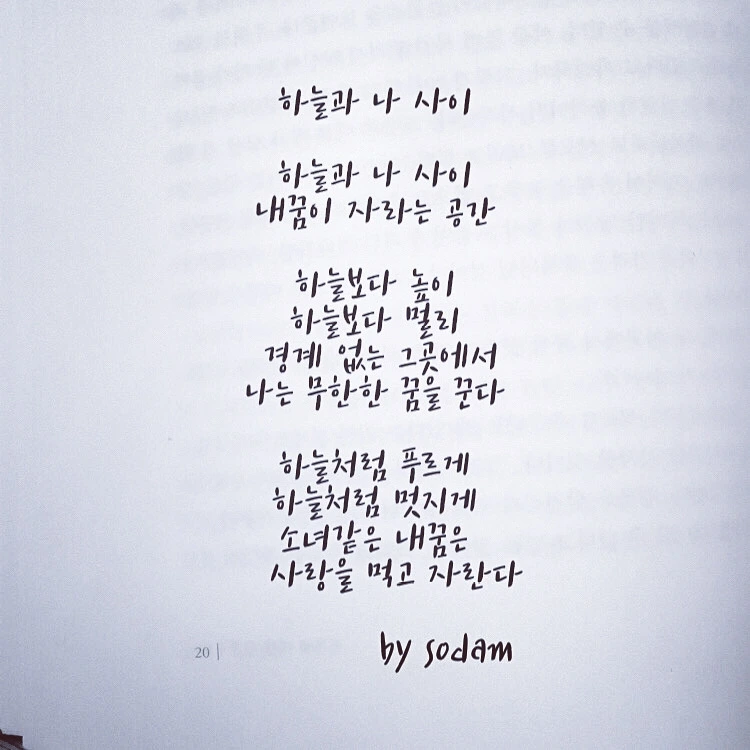 하늘과 나 사이
하늘과 나 사이
내꿈이 자라는 공간
하늘보다 높이
하늘보다 멀리
경계 없는 그곳에서
나는 무한한 꿈을 꾼다
하늘처럼 푸르게
하늘처럼 멋지게
소녀같은 내꿈은
사랑을 먹고 자란다
20 |
by sodam